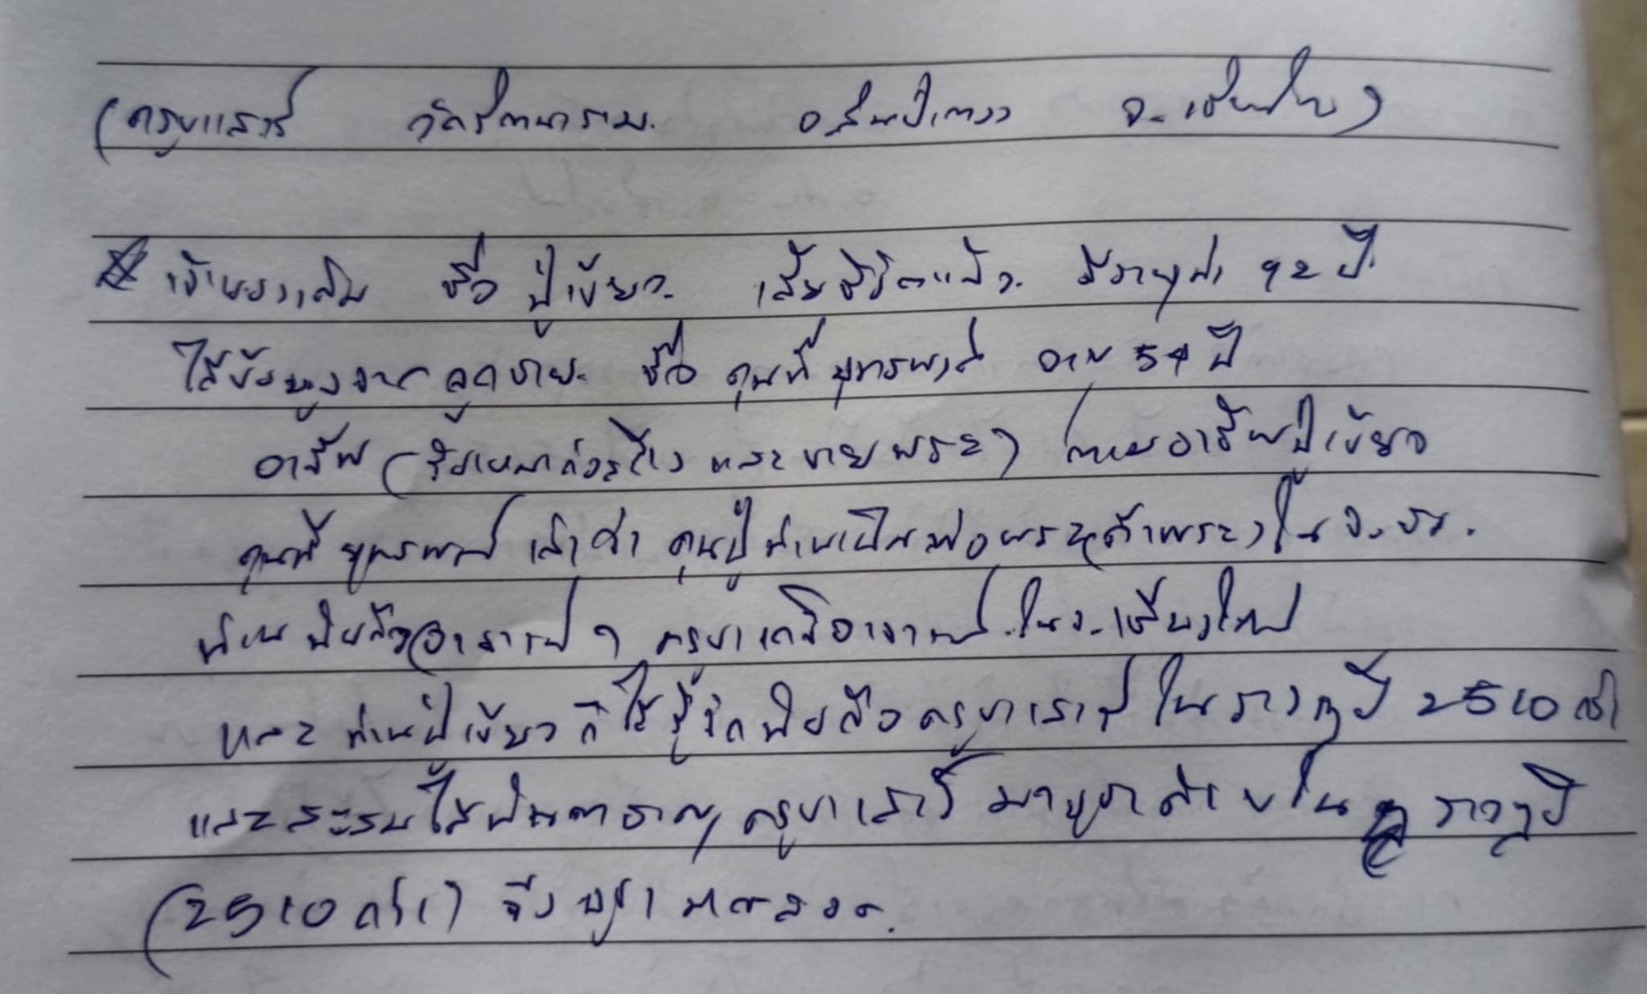 (ครูบาเสาร์ วัดรัตนาราม. อ.สันป่าตอง จ.เชียงใหม่)
เจ้าของเดิม ชื่อ ปู่เขียว. เสียชีวิตแล้ว. มีอายุ 92 ปี.
ได้ข้อมูลจาก ลูกชาย. ชื่อ คุณพี่ยุทธพงษ์ อายุ 54 ปี
อาชีพ (รับเหมาก่อสร้าง และ ขายพระ) ตามอาชีพปู่เขียว
คุณพี่ ยุทธพงษ์ เล่าว่า คุณปู่ท่านเป็นพ่อพระ(ค้าพระ) ใน จ. ชม.
ท่าน นับถือ ๆ ครูบาเกจิอาจารย์.ในจ.เชียงใหม่
และ ท่านปู่เขียว ก็ได้รู้จักนับถือ ครูบาเสาร์ ในราวๆปี 2510 กว่า
และสะสมได้ ครูบาเสาร์ มาบูชา ใน ราวๆปี
(2510 กว่า) จึง ตลอด.